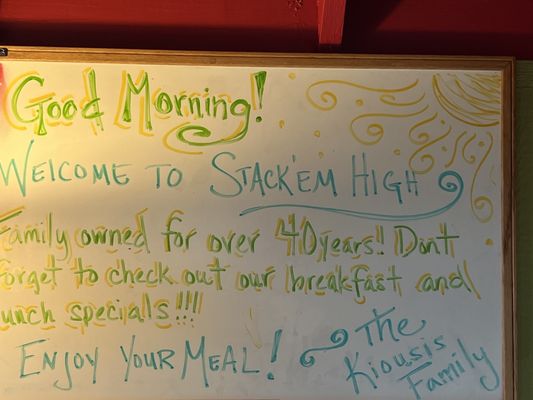 Good Morning!
Welcome to Stack'em High
Family owned for over 40 years!! Don't
forget to check out our breakfast and
lunch specials!!!!
Enjoy Your Meal!
The
Kiousis
Family